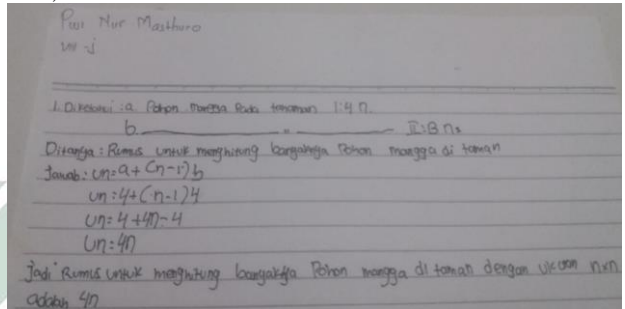 Pwi Nur Masthuro
VIII-j
1. Diketahui : a Pohon mangga pada tanaman I : 4 n.
b ——— " ——— II : 8 n.
Ditanya : Rumus untuk menghitung banyaknya Pohon mangga di taman
Jawab : Un = a + (n-1) b
Un = 4 + (n-1) 4
Un = 4 + 4n - 4
Un = 4n
Jadi Rumus untuk menghitung banyaknya Pohon mangga di taman dengan ukuran nxn
adalah 4n